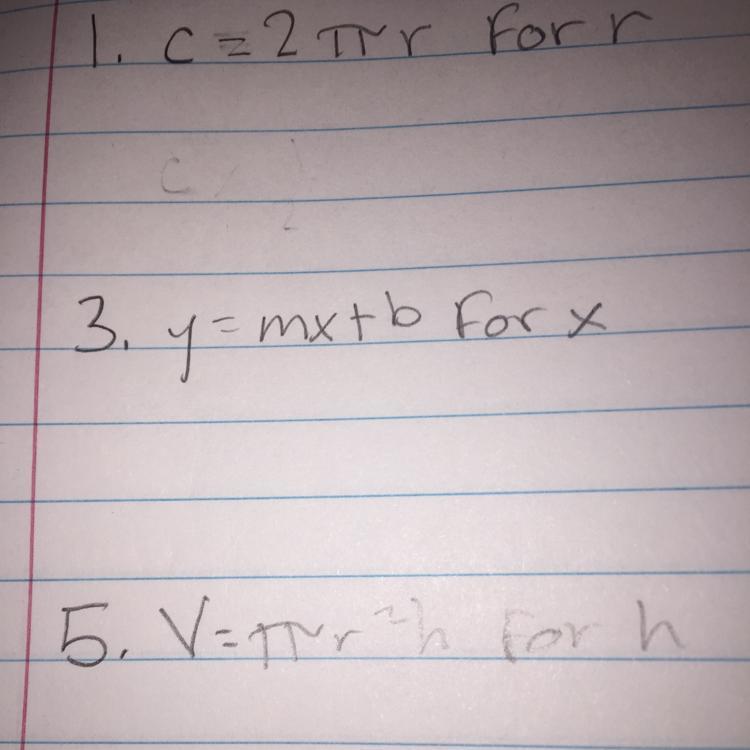 1. C = 2πr for r
3. y = mx + b for x
5. V = πr²h for h